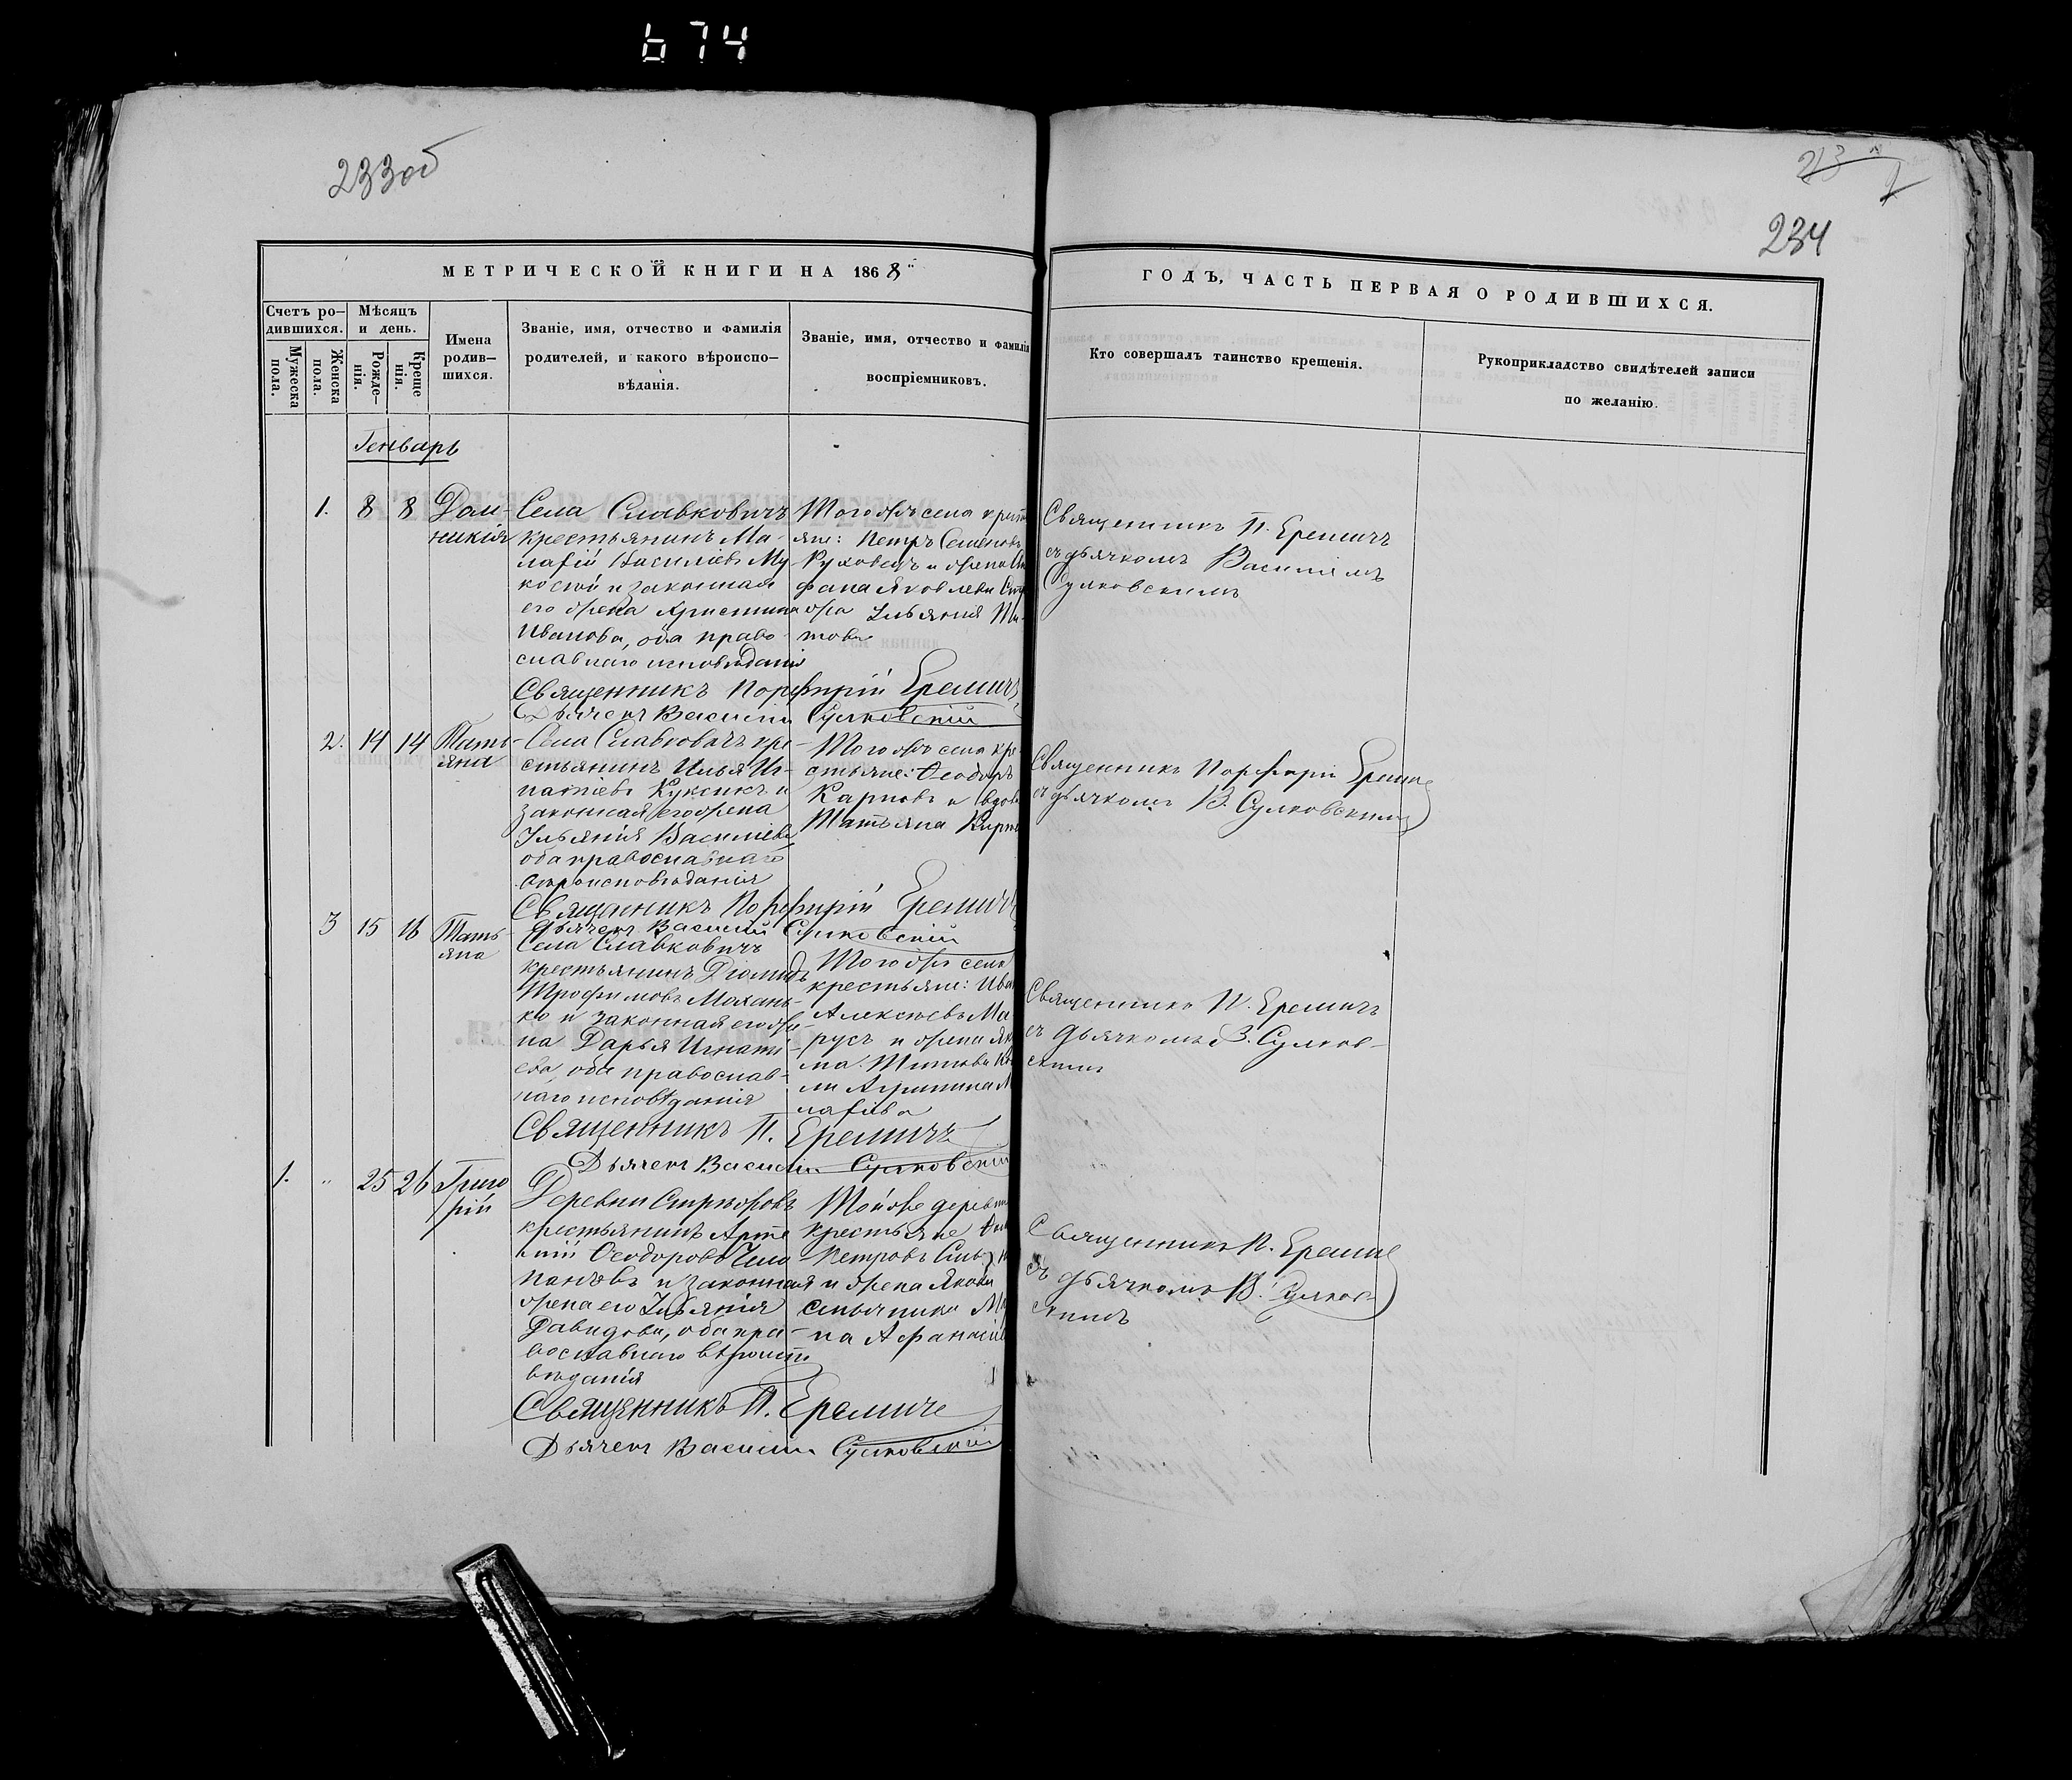 674
233об
234
МЕТРИЧЕСКОЙ КНИГИ НА 1868
Счетъ ро-
дившихся.
Мужеска
пола.
Женска
пола.
Мѣсяцъ
и день.
Рожде-
нія.
Креще
нія.
Имена
родив-
шихся.
Званіе, имя, отчество и фамилія
родителей, и какого вѣроиспо-
вѣданія.
Званіе, имя, отчество и фамилія
воспріемниковъ.
ГОДЪ, ЧАСТЬ ПЕРВАЯ О РОДИВШИХСЯ.
Кто совершалъ таинство крещенія.
Рукоприкладство свидѣтелей записи
по желанію.
Генварь
1. 8 8
Дом-
никія
Села Славковичъ
крестьянинъ Ма-
лафій Василіевъ Му
и законная
его жена Христина
Иванова, оба право-
славнаго исповѣданія
Священникъ Порфирій Еремичъ
Дьячекъ Василій Сулковскій
Того жъ села крест
яне: Петръ Семеновъ
и жена
Яковлева
Ульянія
това
Священникъ П. Еремичъ
съ дьячкомъ Василіемъ
Сулковскимъ
2. 14 14
Тать-
яна
Села Славковичъ кре-
стьянинъ Илья Иг-
натіевъ Куксикъ и
законная его жена
Ульянія Василіева
оба православнаго
вѣроисповѣданія
Священникъ Порфирій Еремичъ
Дьячекъ Василій Сулковскій
Того жъ села кре-
стьяне: Ѳеодоръ
Карповъ и вдова
Татьяна
Священникъ Порфирій Еремичъ
съ дьячкомъ В. Сулковскимъ
3 15 16
Тать
яна
Села Славковичъ
крестьянинъ Діомидъ
Трофимовъ Махань-
ко и законная его же-
на Дарья Игнаті-
ева, оба православ-
наго исповѣданія
Священникъ П. Еремичъ
Дьячекъ Василій Сулковскій
Того жъ села
крестьяне: Ива
Алексѣевъ Ма-
русъ и жена
Титова
Агрипина М
лафіева
Священникъ П. Еремичъ
съ дьячкомъ В. Сулков-
скимъ
1. „ 25 26
Григо
рій
Деревни
крестьянинъ Арте
мій Ѳеодоровъ
и законная
жена его Ульянія
Давидова, оба пра-
вославнаго вѣроиспо
вѣданія
Священникъ П. Еремичъ
Дьячекъ Василій Сулковскій
Той же деревни
крестьяне
Петровъ
и жена
на Афанасіев
Священникъ П. Еремичъ
съ дьячкомъ В. Сулков-
скимъ